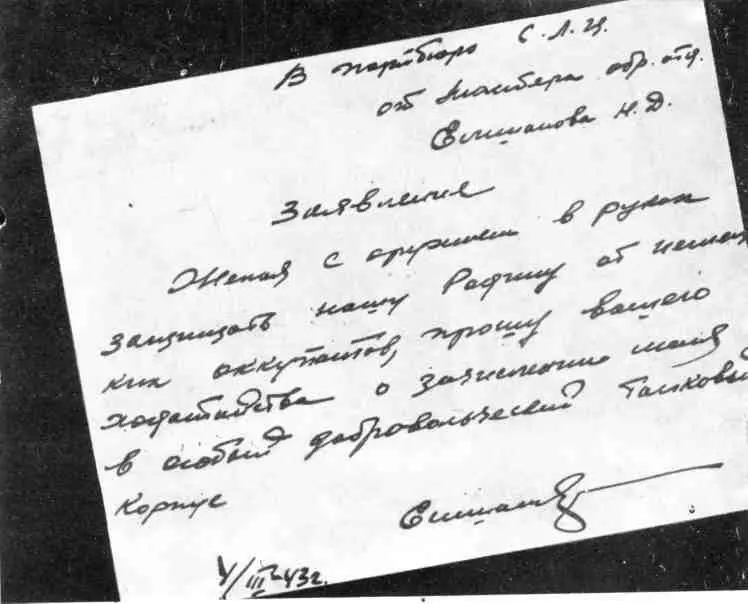 В партбюро С.Л.Ц.
от мастера обр. отд.
Елишанова Н.Д.
Заявление
Желая с оружием в руках
защищать нашу Родину от немец
ких аккупантов, прошу вашего
ходатайства о зачислении меня
в особый добровольческий танковый
корпус
У/III-43г.